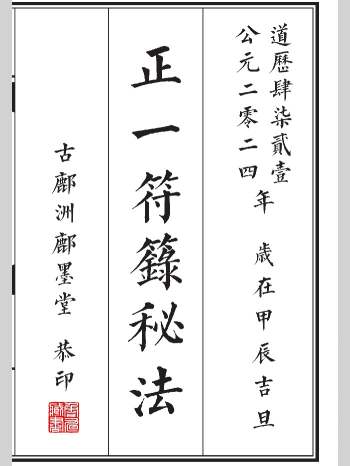 道歷肆柒貳壹
公元二零二四年 歲在甲辰吉旦
正一符籙秘法
古鄺洲鄺墨堂 恭印